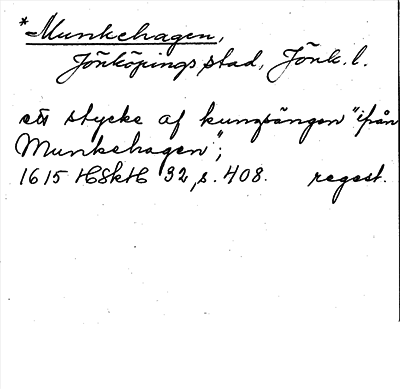 *Munkehagen,
Jönköpings stad, Jönk. l.
ett stycke af kungsängen "ifrån
Munkehagen";
1615 HSkH 32, s. 408. regest.